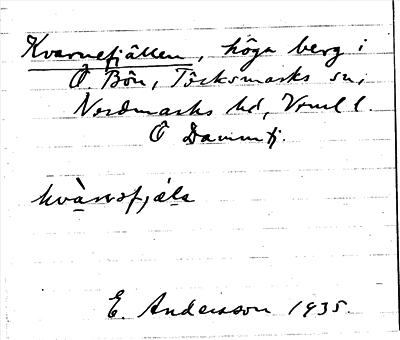 Kvarnefjällen, höga berg i
Ö. Bön, Töcksmarks sn,
Nordmarks hd, Vrml l.
Ö Dammtj.
kvà̀rnəfjäla
E. Andersson 1935.